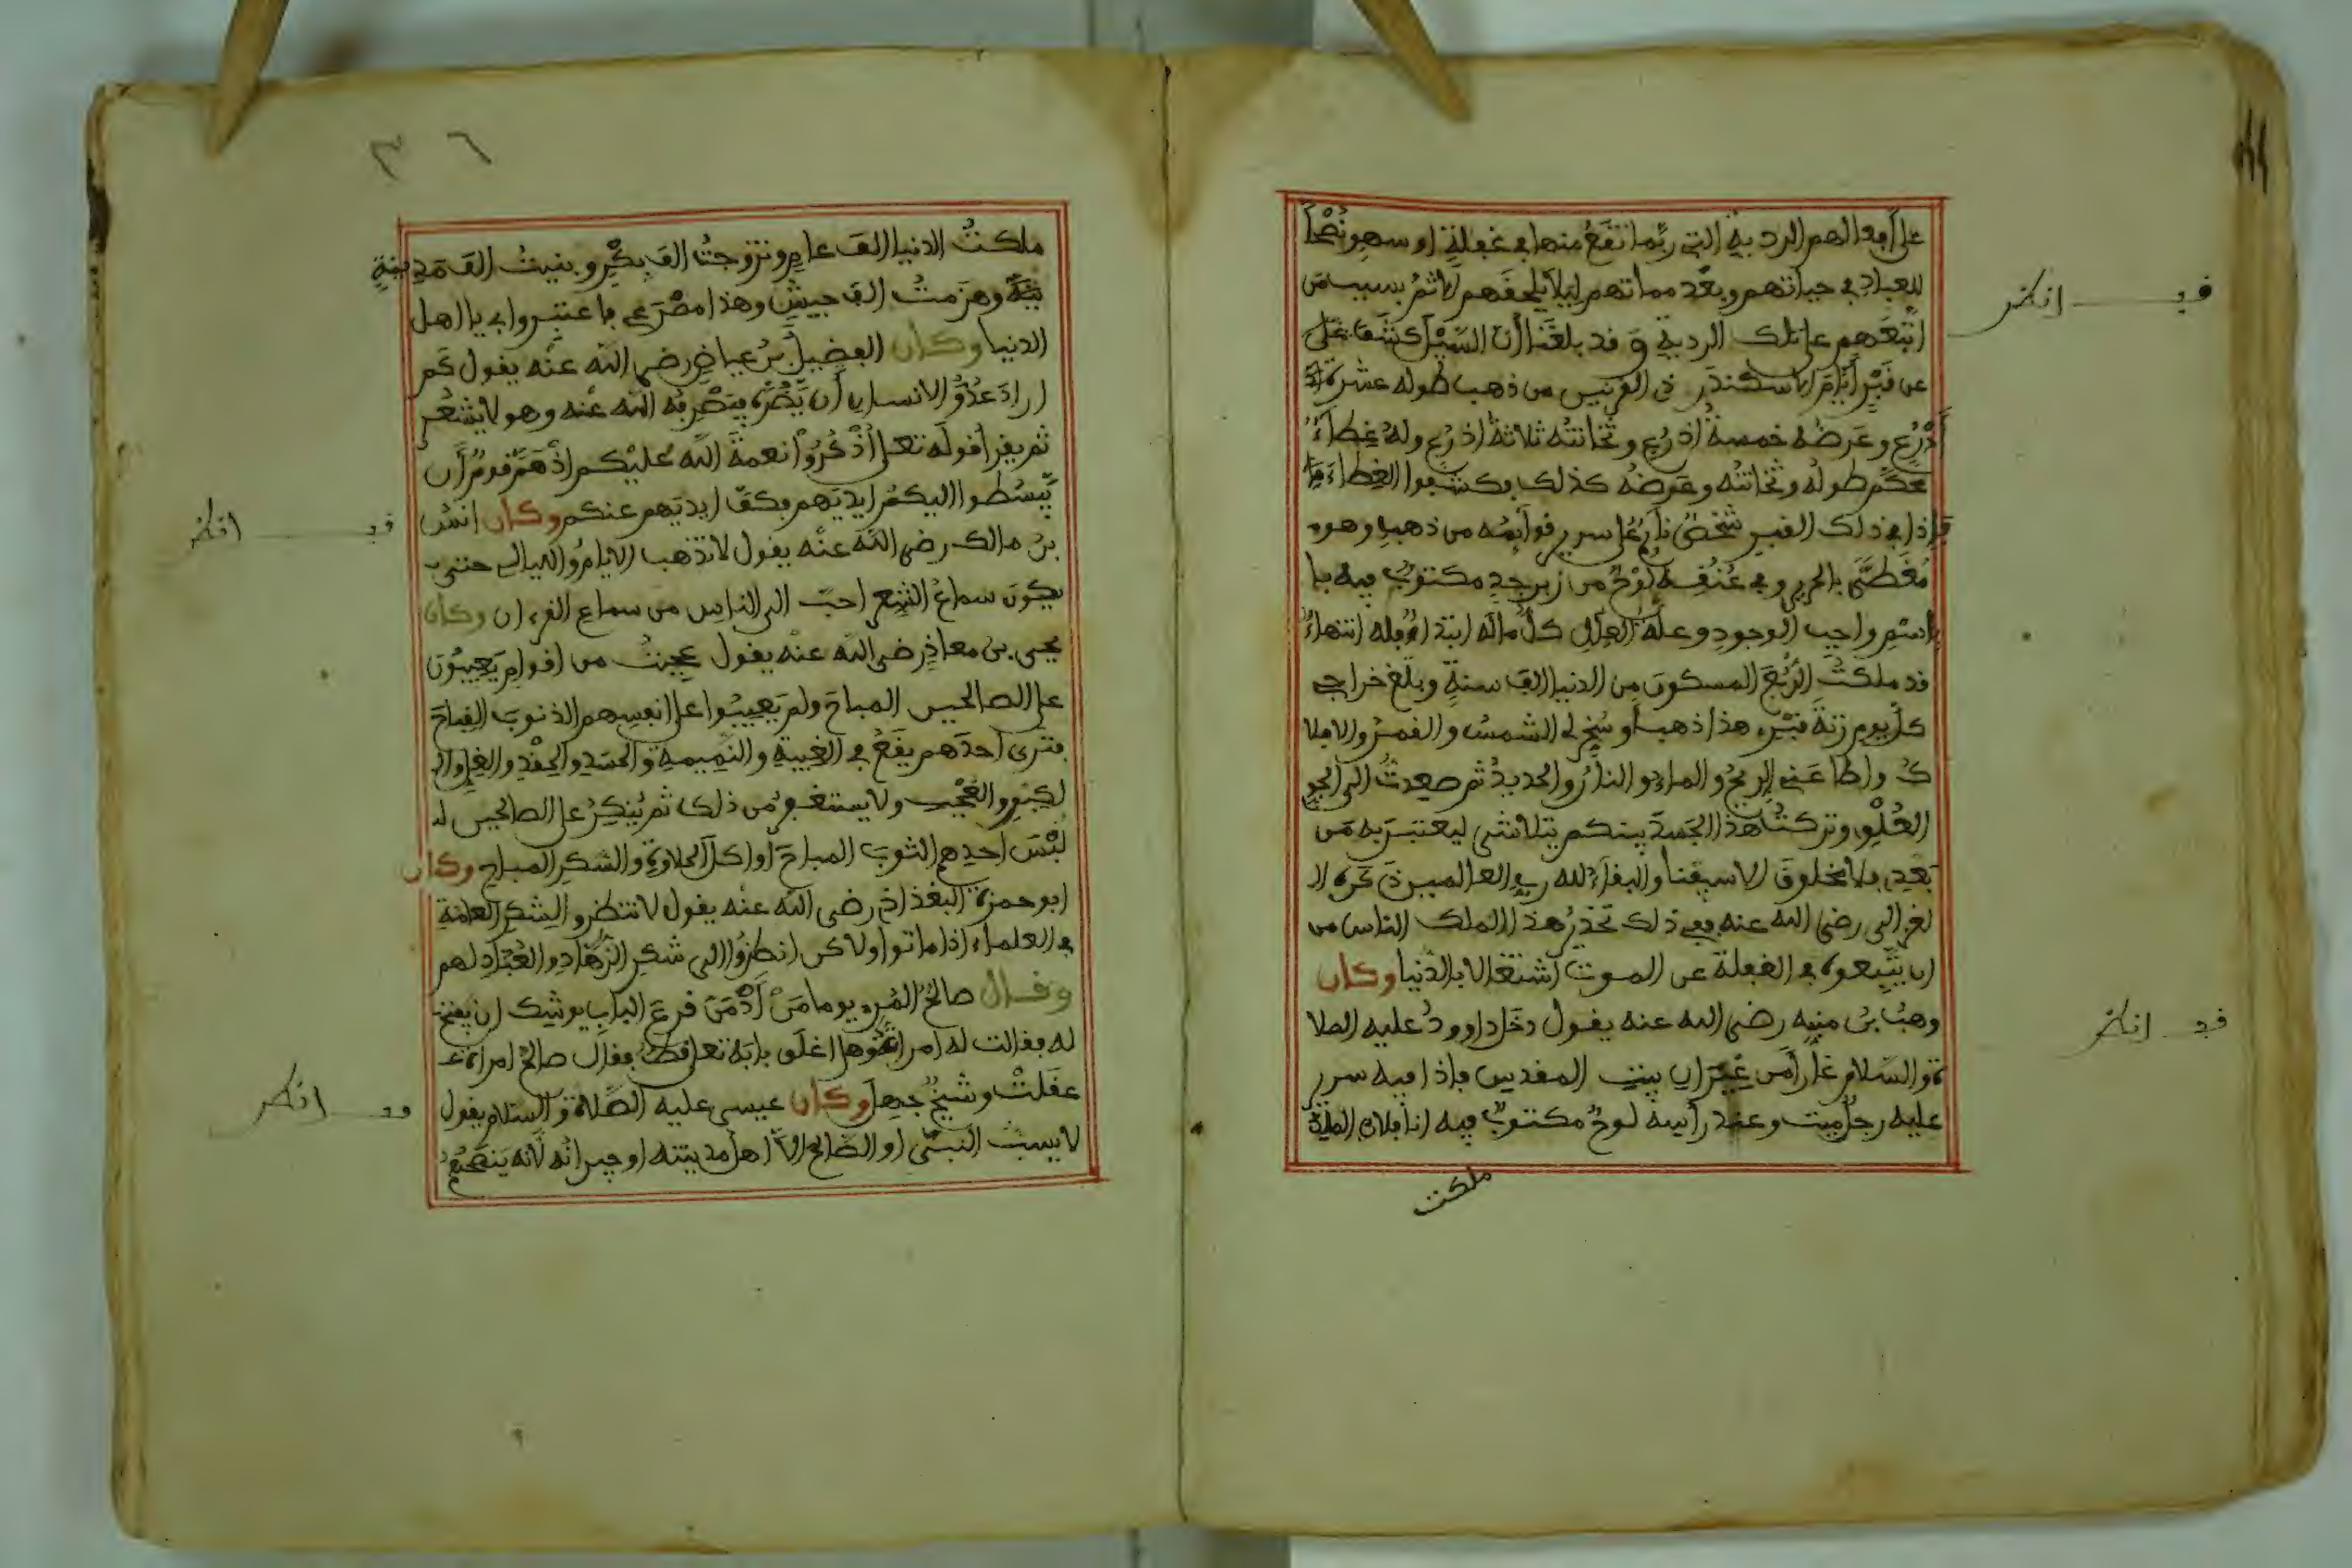 على أفعالهم الردية التي ربما تقع منها في غفلة او سهو نصحا
للعباد في حياتهم وبعد مماتهم ليلا يلحقهم الاثم بسبب من
اتبعهم على تلك الردية وقد بلغنا أن السيل كشف على
عن قبر أيام الاسكندر ذي القرنين من ذهب طوله عشرة
أذرع وعرضه خمسة اذرع وثخانته ثلاثة اذرع وله غطاء
طوله وثخانته وعرضه كذلك فكشفوا الغطاء
فإذا في ذلك القبر شخص نايم على سرير قوائمه من ذهب وهو
مغطى بالحرير وفي عنقه لوح من زبرجد مكتوب فيه با
باسم واجب الوجود وعلة العلل كل ماله ابتداء فله انتهاء
قد ملكت الربع المسكون من الدنيا الف سنة وبلغ خراجي
كل يوم زنة قبري هذا ذهبا وسخر لي الشمس والقمر والافلا
ك واطاعني الريح والماء والنار والحديد ثم صعدت الى الجو
العلو وتركت هذا الجسد بينكم يتلاشى ليعتبر به من
بعدي فلا مخلوق الا سيفنا والبقاء لله رب العالمين ذكره ال
لغزالي رضي الله عنه ففي ذلك تحذير هذا الملك الناس من
ان يتبعوه في الغفلة عن الموت اشتغالا بالدنيا وكان
وهب بن منبه رضي الله عنه يقول دخل داوود عليه الصلا
ة والسلام غارا من غيران بيت المقدس فإذا فيه سرير
عليه رجل ميت وعند رأسه لوح مكتوب فيه انا فلان الملك
ملكت
قف انظر
قف انظر
٣٦
ملكت الدنيا الف عام وتزوجت الف بكر وبنيت الف مدينة
وهزمت الف جيش وهذا مصرعي فاعتبروا بي يا اهل
الدنيا وكان الفضيل بن عياض رضي الله عنه يقول كم
اراد عدو الانسان أن يضره فينصر به الله عنه وهو لا يشعر
ثم يقرأ قوله تعلى اذكروا نعمة الله عليكم اذ هم قوم أن
يبسطوا اليكم ايديهم فكف ايديهم عنكم وكان انس
بن مالك رضي الله عنه يقول لا تذهب الايام والليالي حتى
يكون سماع الشعر احب الى الناس من سماع القرءان وكان
يحيى بن معاذ رضي الله عنه يقول عجبت من اقوام يعيبون
على الصالحين المباح ولم يعيبوا على انفسهم الذنوب القباح
فترى احدهم يقع في الغيبة والنميمة والحسد والحقد والغل وال
لكبر والعجب ولا يستغفر من ذلك ثم ينكر على الصالحين ل
لبس احدهم الثوب المباح أو اكل الحلاوة والشكر المباح وكان
ابو حمزة البغداذي رضي الله عنه يقول لا تنظروا لشكر العامة
في العلماء اذا ماتوا ولاكن انظروا الى شكر الزهاد والعباد لهم
وقال صالح المري يوما من أدمن قرع الباب يوشك ان يفتح
له فقالت له امراة وهل اغلق بابه تعلى قط فقال صالح امراة
عقلت وشيخ جهل وكان عيسى عليه الصلاة والسلام يقول
لا يسب النبي او الصالح الا اهل مدينته او جيرانه لأنه ينصحهم
قف انظر
قف انظر